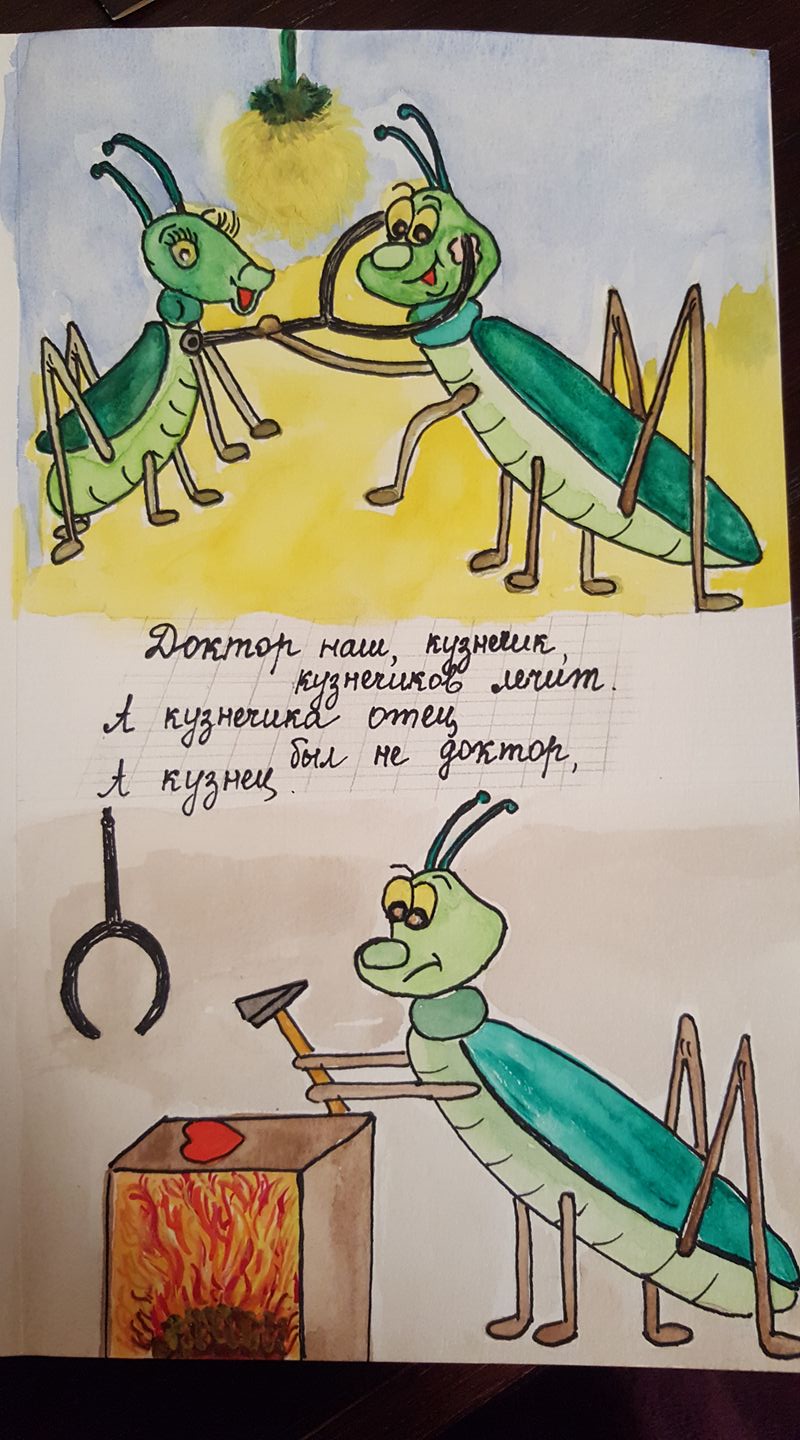 Доктор наш, кузнечик,
кузнечиков лечит.
А кузнечика отец
был не доктор,
А кузнец.